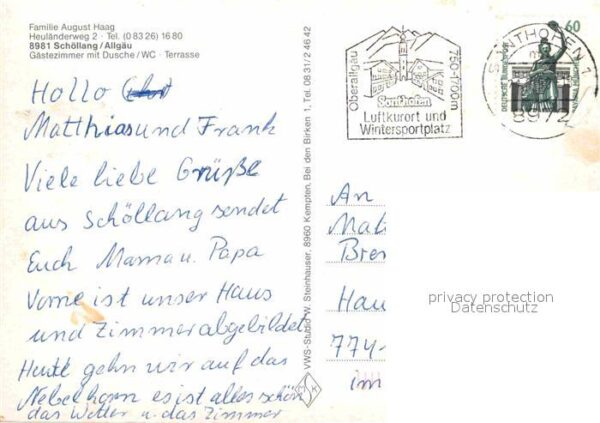 Familie August Haag
Heuländerweg 2 · Tel. (0 83 26) 16 80
8981 Schöllang/Allgäu
Gästezimmer mit Dusche/WC · Terrasse
Hallo
Matthias und Frank
Viele liebe Grüße
aus Schöllang sendet
Euch Mama u. Papa
Vorne ist unser Haus
und Zimmer abgebildet
Heute gehn wir auf das
Nebelhorn es ist alles schön
das Wetter u. das Zimmer
VWS-Studio W. Steinhauser, 8960 Kempten, Bei den Birken 1, Tel. 08 31/2 46 42
Oberallgäu
750-1700m
Sonthofen
Luftkurort und
Wintersportplatz
SONTHOFEN 1
8972
60
DEUTSCHE BUNDESPOST
An
Mat
Bre
Hau
774
im
privacy protection
Datenschutz